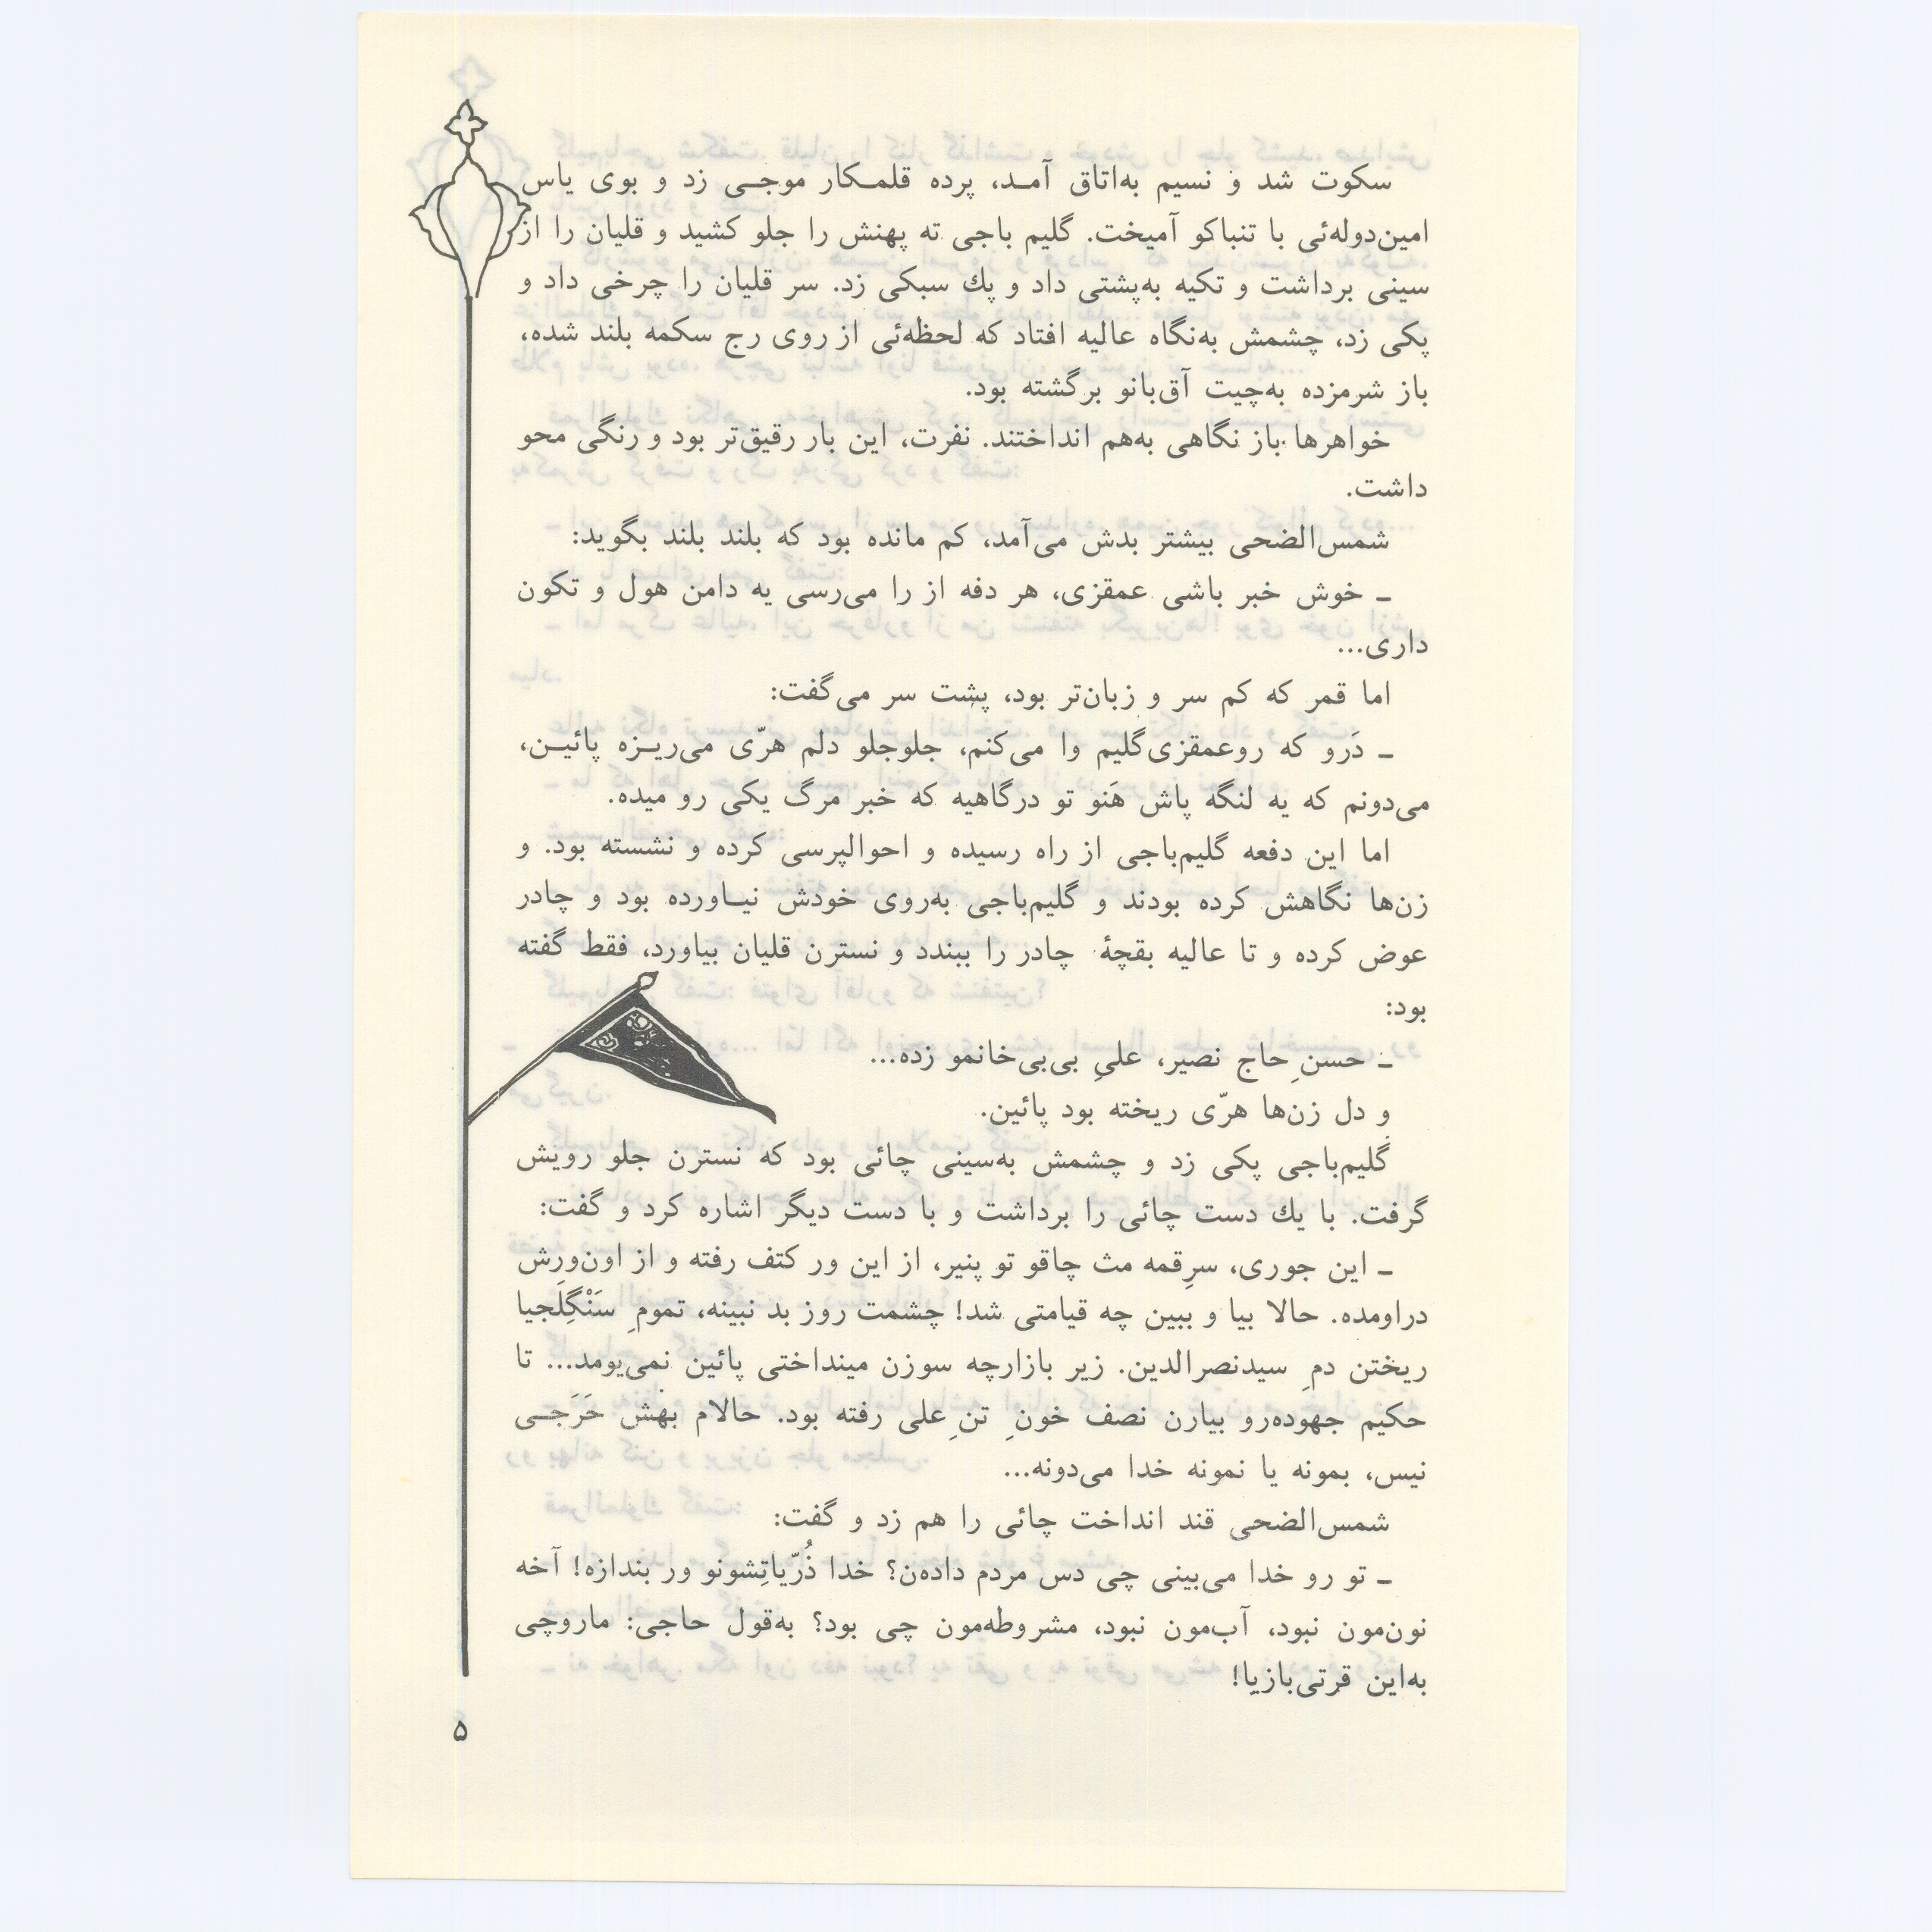 سکوت شد و نسیم به‌اتاق آمـد، پرده قلمـکار موجـی زد و بوی یاس
امین‌دوله‌ئی با تنباکو آمیخت. گلیم باجی ته پهنش را جلو کشید و قلیان را از
سینی برداشت و تکیه به‌پشتی داد و پك سبکی زد. سر قلیان را چرخی داد و
پکی زد، چشمش به‌نگاه عالیه افتاد که لحظه‌ئی از روی رج سکمه بلند شده،
باز شرمزده به‌چیت آق‌بانو برگشته بود.
خواهرها باز نگاهی به‌هم انداختند. نفرت، این بار رقیق‌تر بود و رنگی محو
داشت.
شمس‌الضحی بیشتر بدش می‌آمد، کم مانده بود که بلند بلند بگوید:
ـ خوش خبر باشی عمقزی، هر دفه از را می‌رسی یه دامن هول و تکون
داری...
اما قمر که کم سر و زبان‌تر بود، پشت سر می‌گفت:
ـ دَرو که روعمقزی‌گلیم وا می‌کنم، جلوجلو دلم هرّی می‌ریـزه پائیـن،
می‌دونم که یه لنگه پاش هَنو تو درگاهیه که خبر مرگ یکی رو میده.
اما این دفعه گلیم‌باجی از راه رسیده و احوالپرسی کرده و نشسته بود. و
زن‌ها نگاهش کرده بودند و گلیم‌باجی به‌روی خودش نیـاورده بود و چادر
عوض کرده و تا عالیه بقچهٔ چادر را ببندد و نسترن قلیان بیاورد، فقط گفته
بود:
ـ حسنِ حاج نصیر، علیِ بی‌بی‌خانمو زده...
و دل زن‌ها هرّی ریخته بود پائین.
گلیم‌باجی پکی زد و چشمش به‌سینی چائی بود که نسترن جلو رویش
گرفت. با یك دست چائی را برداشت و با دست دیگر اشاره کرد و گفت:
ـ این جوری، سرِقمه مث چاقو تو پنیر، از این ور کتف رفته و از اون‌ورش
دراومده. حالا بیا و ببین چه قیامتی شد! چشمت روز بد نبینه، تمومِ سَنْگِلَجیا
ریختن دمِ سیدنصرالدین. زیر بازارچه سوزن مینداختی پائین نمی‌یومد... تا
حکیم جهوده‌رو بیارن نصف خونِ تنِ علی رفته بود. حالام بهش حَرَجـی
نیس، بمونه یا نمونه خدا می‌دونه...
شمس‌الضحی قند انداخت چائی را هم زد و گفت:
ـ تو رو خدا می‌بینی چی دس مردم داده‌ن؟ خدا ذُرّیاتِشونو ور بندازه! آخه
نون‌مون نبود، آب‌مون نبود، مشروطه‌مون چی بود؟ به‌قول حاجی: ماروچی
به‌این قرتی‌بازیا!
۵